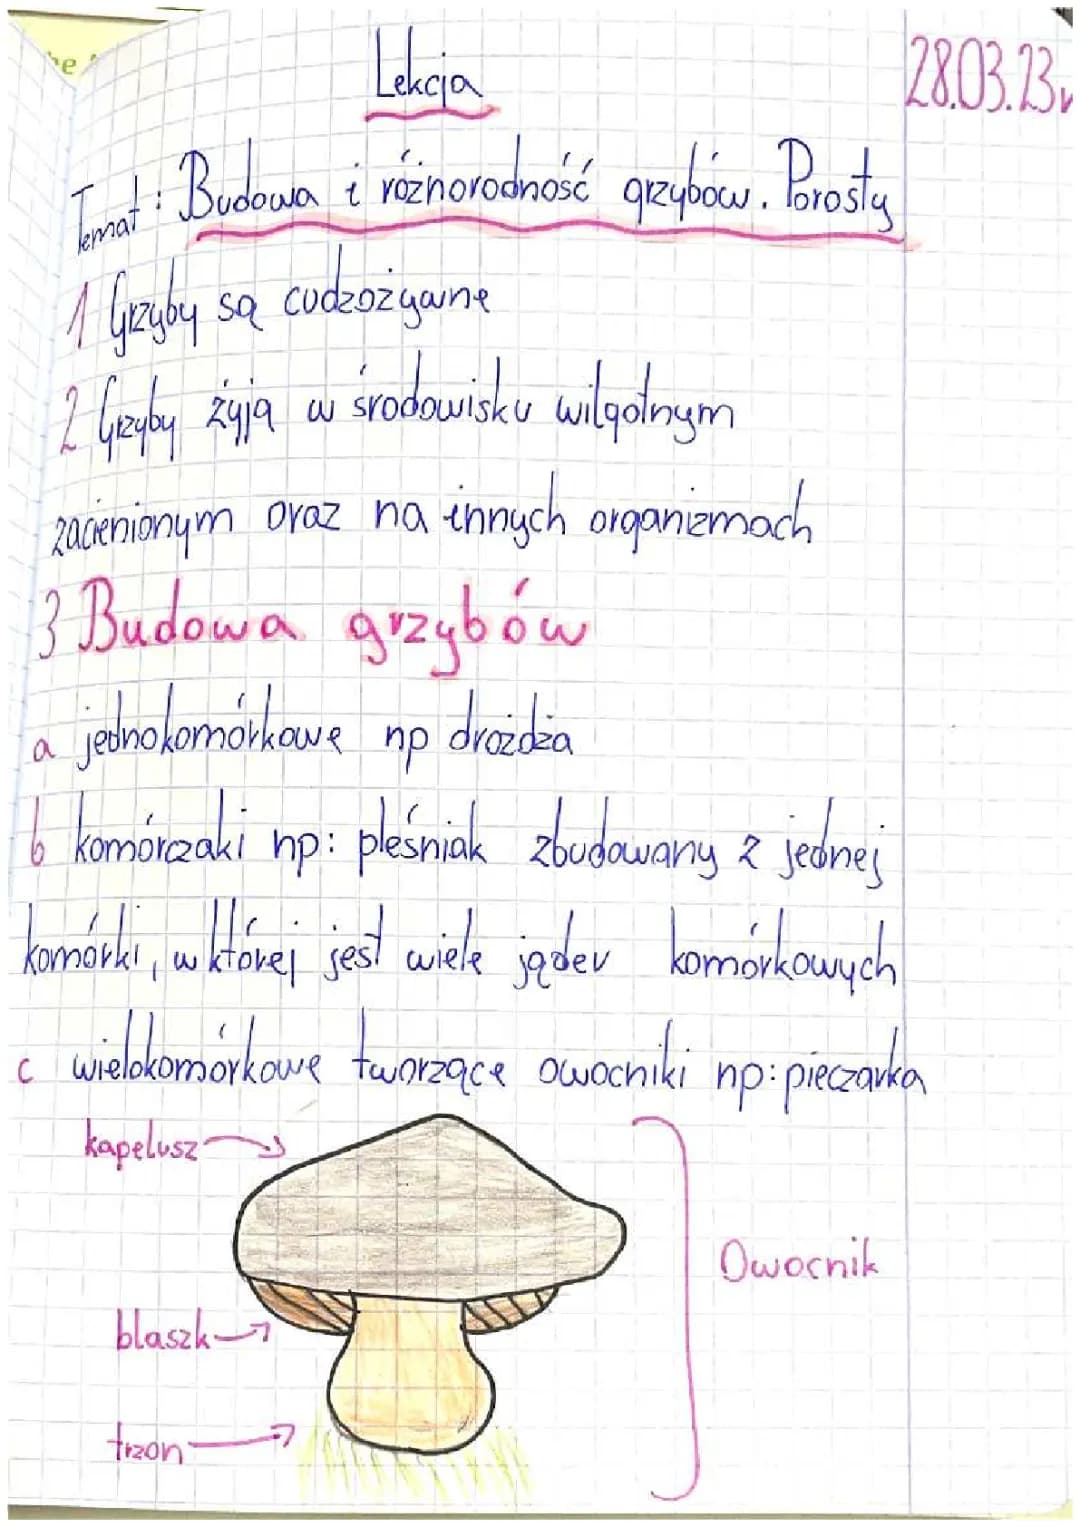 Lekcja
28.03.23r
Temat: Budowa i różnorodność grzybów. Porosty
1 Grzyby są cudzożywne
2 Grzyby żyją w środowisku wilgotnym
zacienionym oraz na innych organizmach
3 Budowa grzybów
a jednokomórkowe np drożdża
b komórczaki np: pleśniak zbudowany z jednej
komórki, w której jest wiele jąder komórkowych
c wielokomórkowe tworzące owocniki np: pieczarka
kapelusz
Owocnik
blaszk
trzon